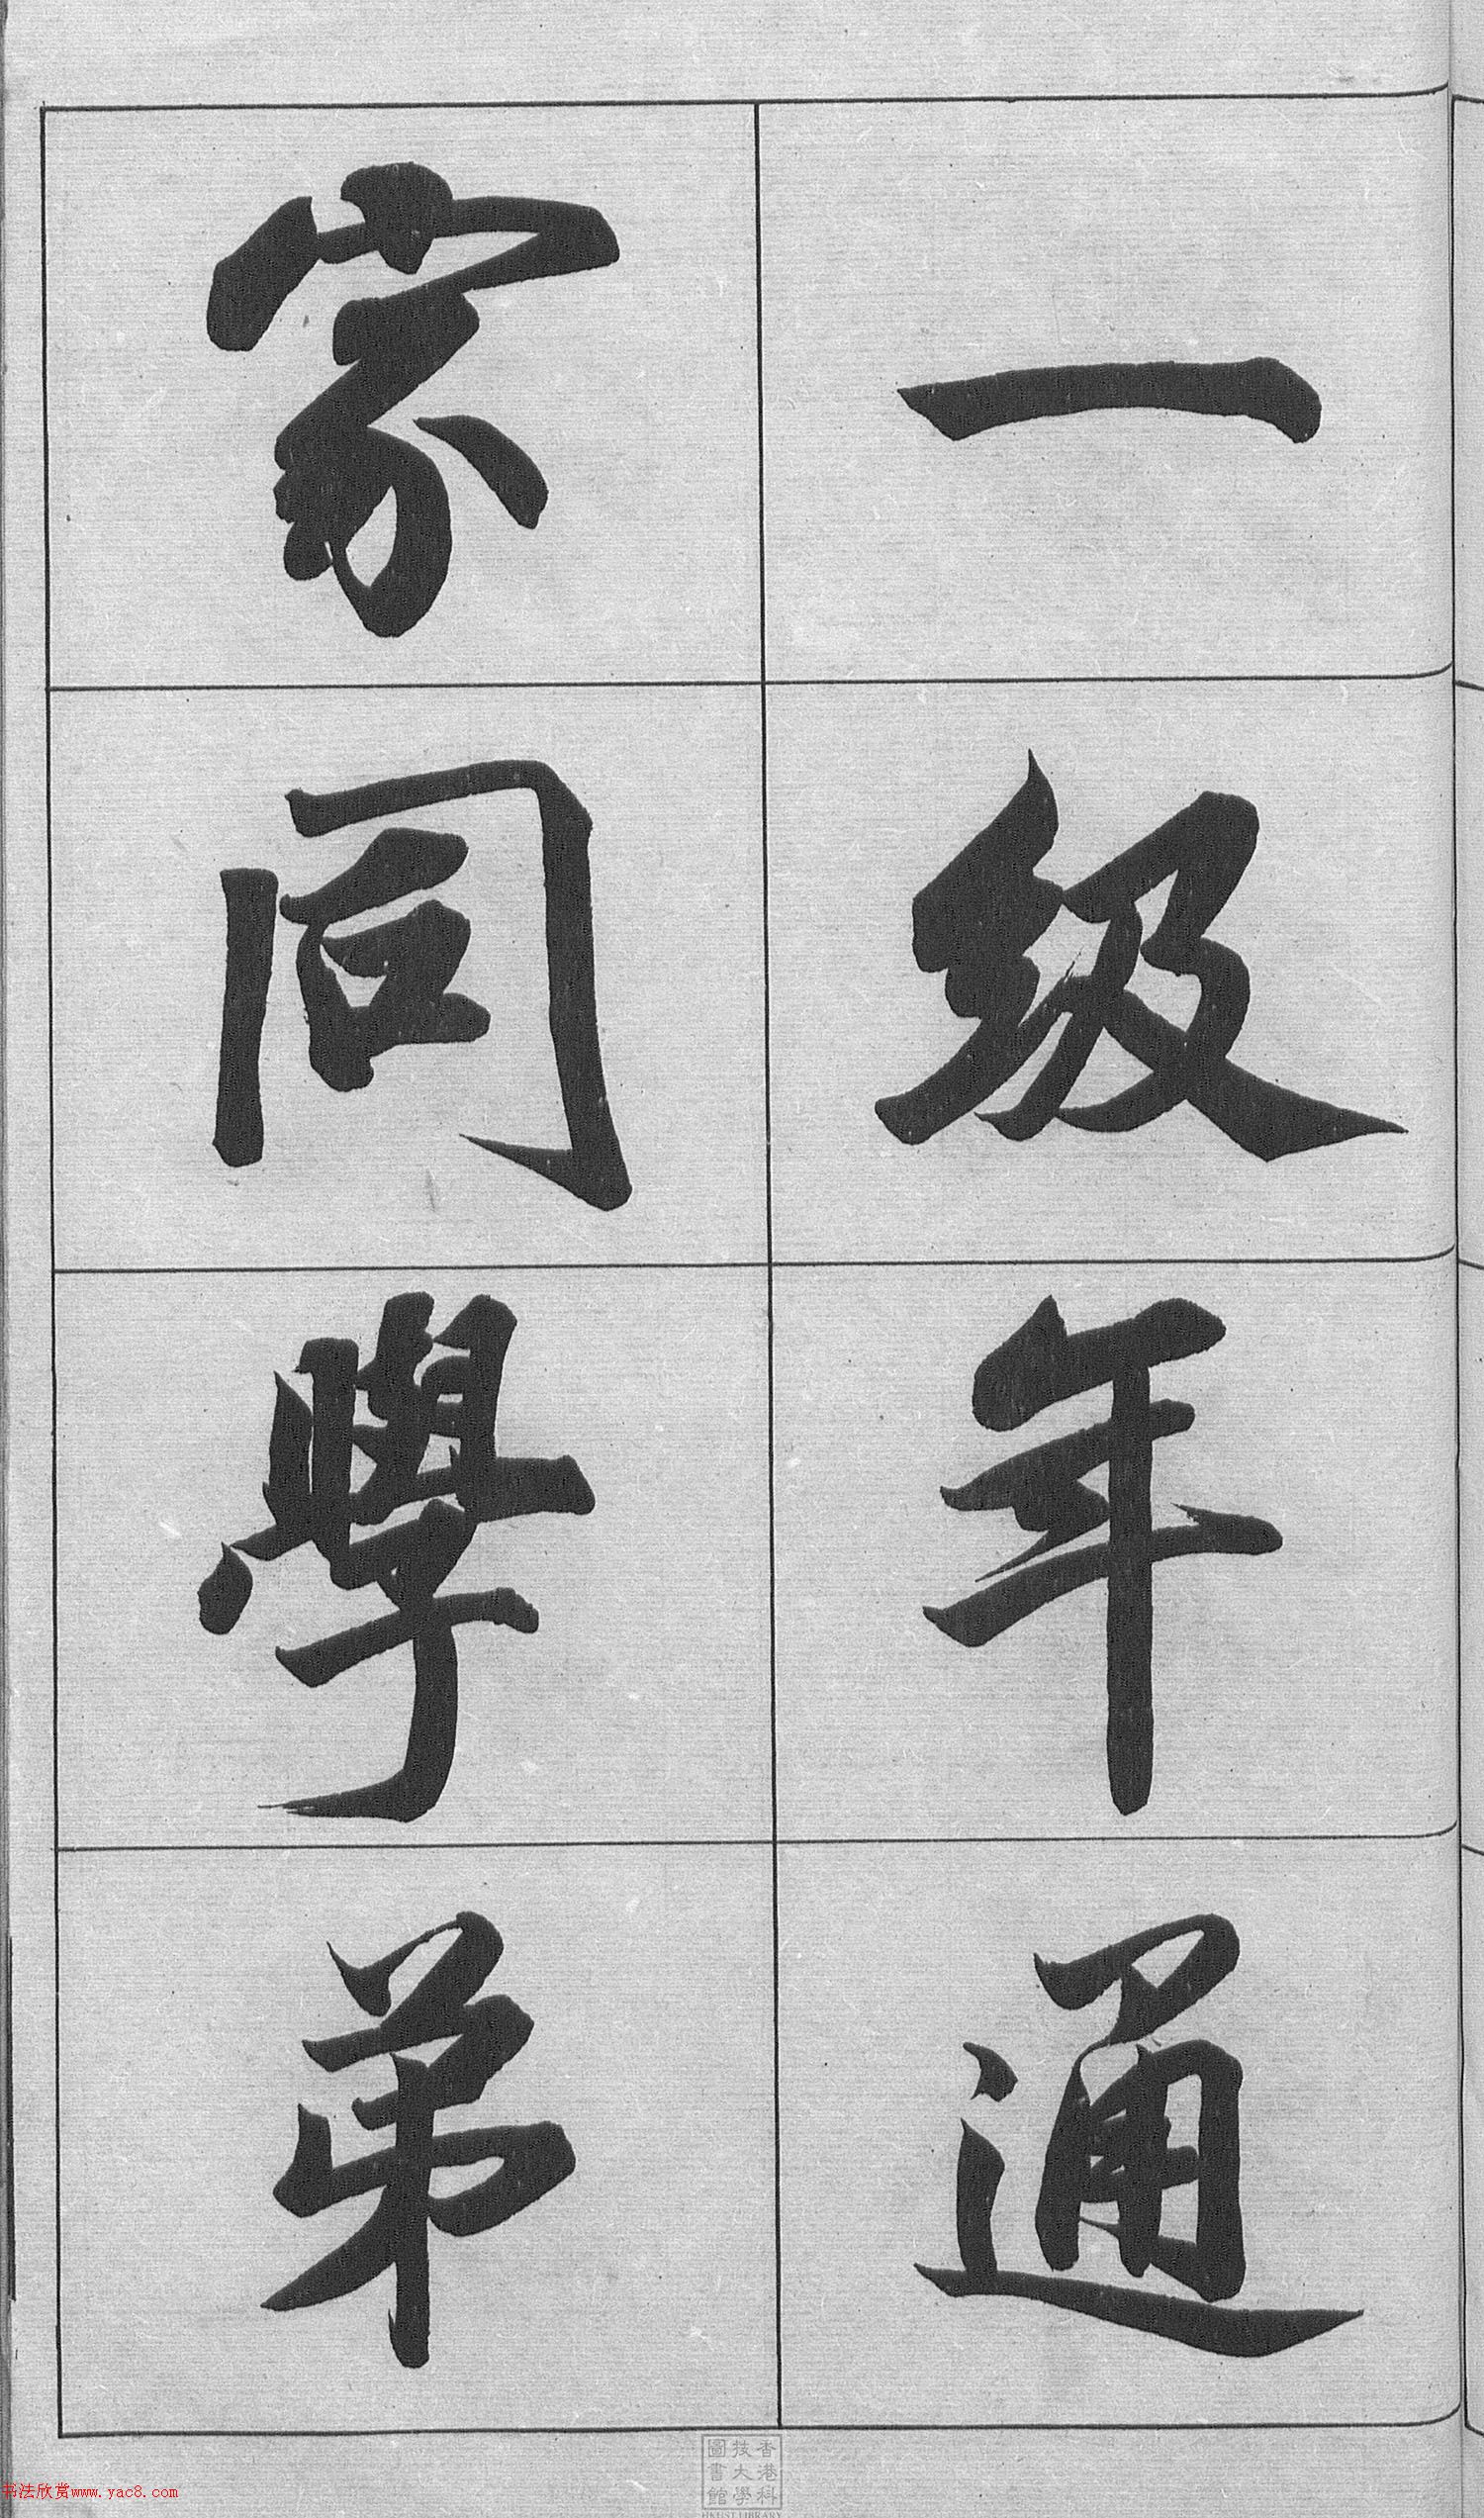 一級年通
家同學弟
香港科
技大學
圖書館
HKUST LIBRARY
书法欣赏www.yac8.com